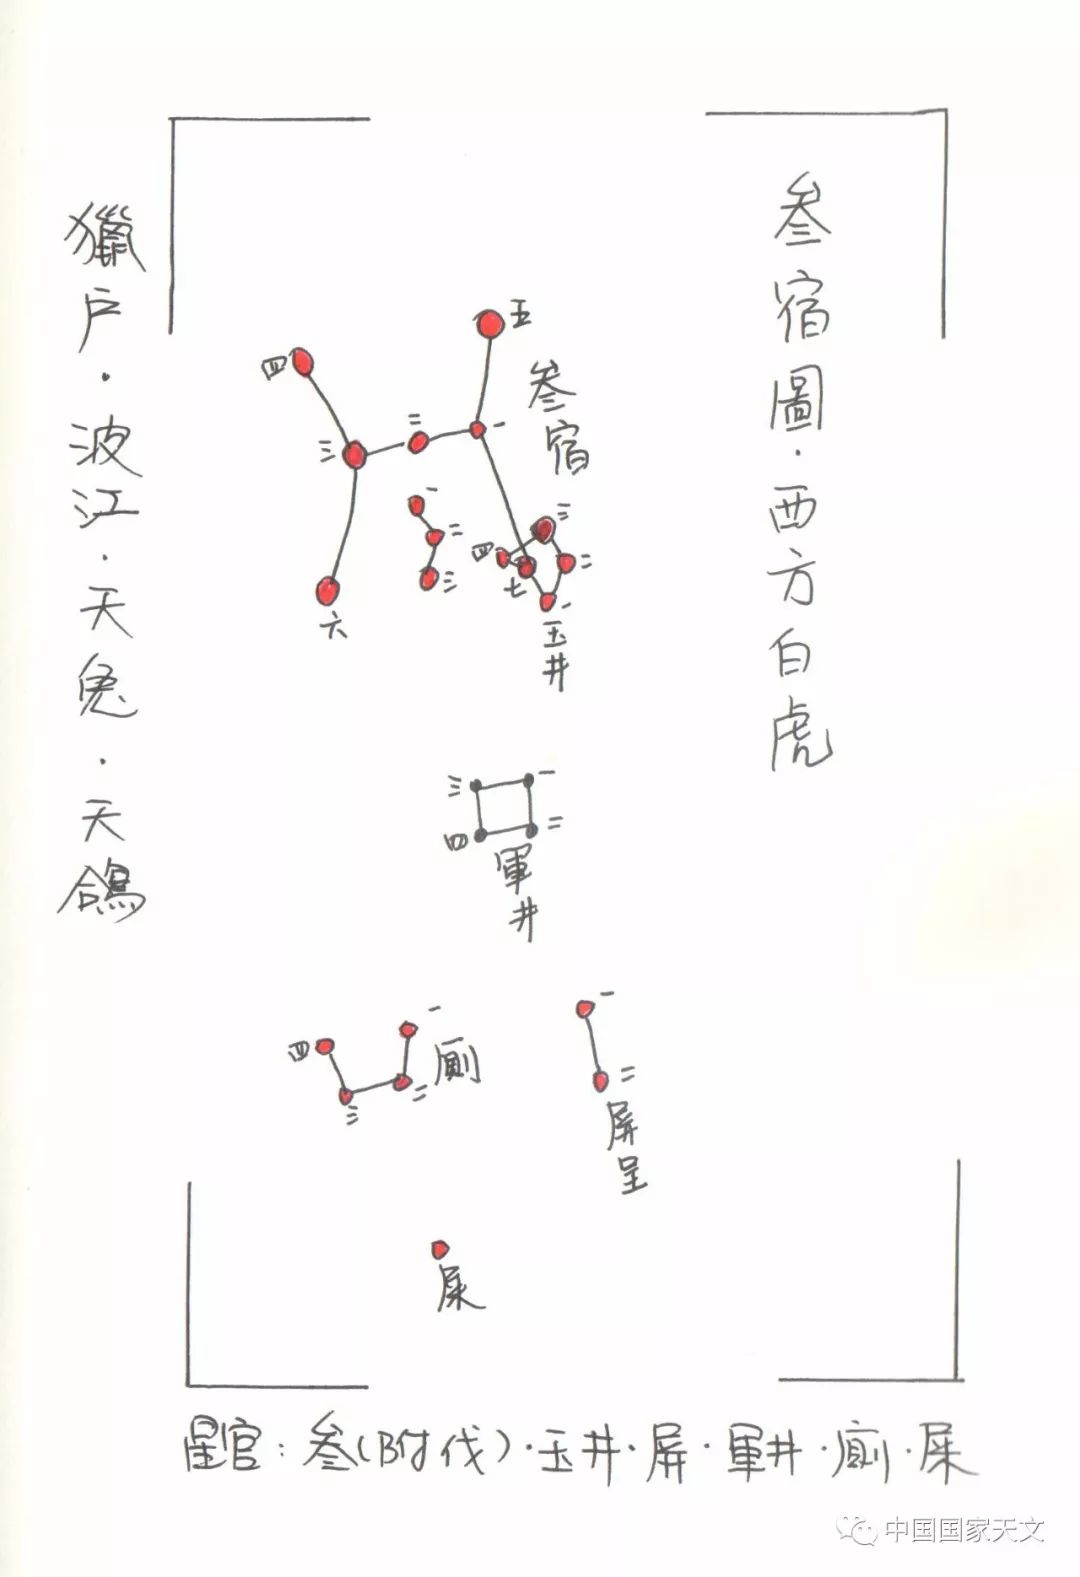 叁宿圖·西方白虎
獵户·波江·天兔·天鴿
五
四
叁宿
二
一
三
一
二
三
三
四
二
七
一
六
玉井
三
一
四
二
軍井
一
四
廁
二
三
一
二
屏星
屎
星官:叁(附伐)·玉井·屏·軍井·廁·屎
中国国家天文